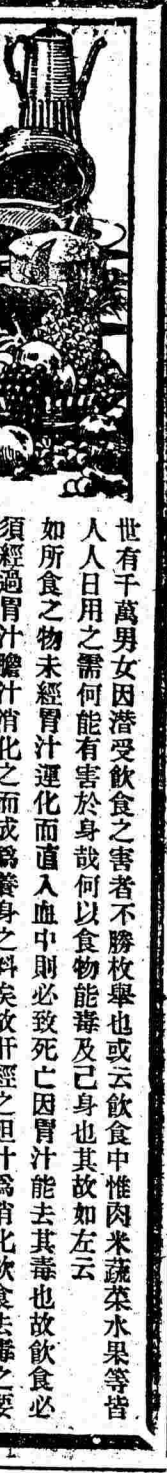 世有千萬男女因潛受飲食之害者不勝枚舉也或云飲食中惟肉米蔬菜水果等皆
人人日用之需何能有害於身哉何以食物能毒及己身也其故如左云
如所食之物未經胃汁運化而直入血中則必致死亡因胃汁能去其毒也故飲食必
須經過胃汁膽汁消化之而成爲養身之料矣故肝經之胆汁爲消化飲食去毒之要